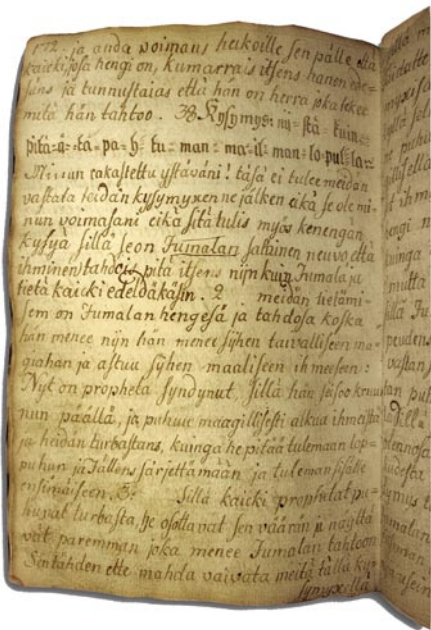 172. ja anda voimans heikoille sen pälle että
kaicki, josa hengi on, kumarrais itsens hänen ede=
säns ja tunnustaias että hän on herra joka tekee
mitä hän tahtoo. 38 Kysymys: nii= stä= kuin=
pitä= ä= ta= pa= h= tu= man= ma= il= man= lo= pul= la=
Minun rakastettu ystäväni! täsä ei tule meidän
vastata teidän kysymyxenne jälken eikä se ole mi=
nun voimasani eikä sitä tulis myös kenengän
kysyä sillä se on Jumalan salainen neuvo, että
ihminen tahdois pitä itsens nijn kuin Jumala ja
tietä kaicki edeldäkäsin. 2 meidän tietämi=
sem on Jumalan hengesä ja tahdosa koska
hän menee nijn hän menee sijhen taivalliseen ma=
giahan ja astuu sijhen maaliseen ihmeseen:
Nyt on propheta syndynut, sillä hän seisoo
nun päällä, ja puhuu maagillisesti alkua ihmeistä
ja heidän turbastans, kuinga he pitää tulemaan lop=
puhun ja Jällens särjettämään ja tuleman sisälle
ensimäiseen. 3: Sillä kaicki prophetat pu=
huvat turbasta, he osottavat sen väärän ja näyttä
vät paremman joka menee Jumalan tahtoon
Sentähden ette mahda vaivata meitä tällä ky=
symyxellä